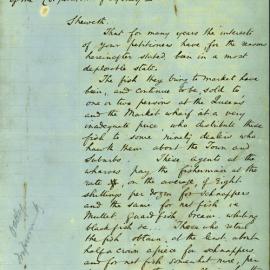 of the Corporation of Sydney
Sheweth.
That for many years the interests
of your petitioners have, for the reasons
hereinafter stated, been in a most
deplorable state.
The fish they bring to market have
been, and continue to be, sold to
one or two persons at the Queens
and the Market wharf at a very
inadequate price, who distribute these
fish to some ninety dealers who
hawk them about the Town and
Suburbs. These agents at the
wharves pay the fisherman at the
rate of on the average of Eight
shillings per dozen for Schnappers
and the same for net fish ie
Mullet, Guard fish, bream, whiting
black fish &c. Those who retail
the fish obtain, at the least, about
half a crown apiece for schnappers
and for net fish somewhat more, per